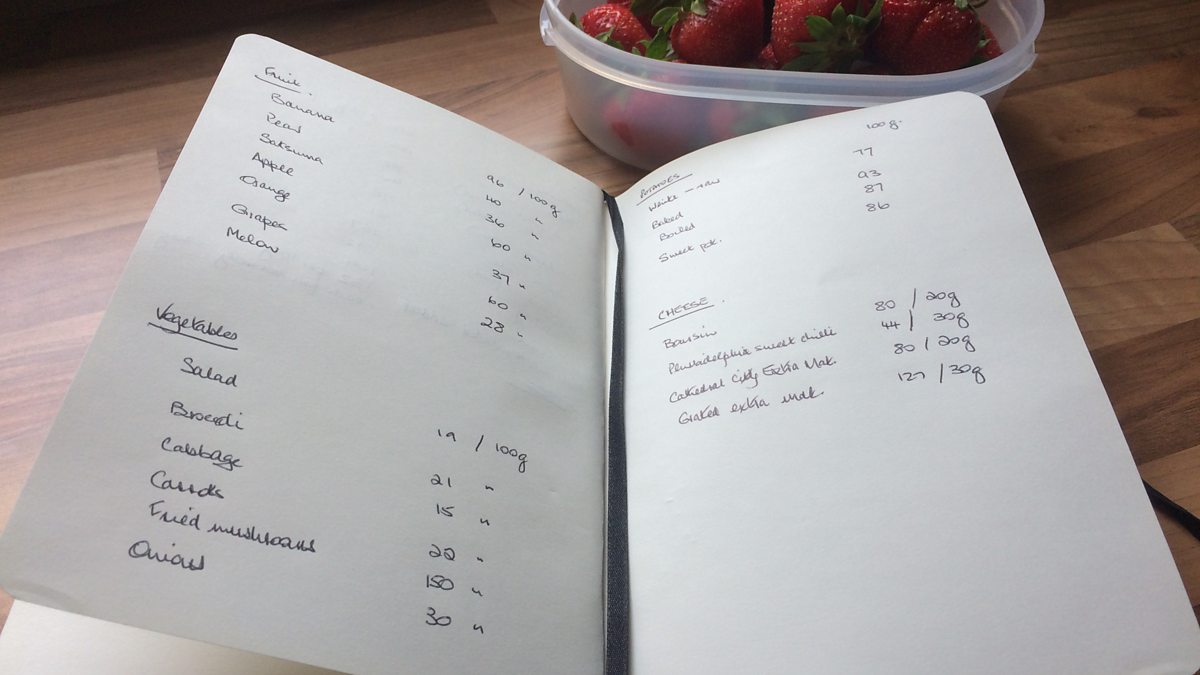 Fruit.
Banana 96 / 100g
Pear 40 "
Satsuma 36 "
Apple 60 "
Orange 37 "
Grapes 60 "
Melon 28 "
Vegetables
Salad 19 / 100g
Brocoli 21 "
Cabbage 15 "
Carrots 22 "
Fried mushrooms 150 "
Onions 30 "
100g.
POTATOES
White - raw 77
Baked 93
Boiled 87
Sweet pot. 86
CHEESE.
Boursin 80 / 20g
Philadelphia sweet chilli 44 / 30g
Cathedral City Extra Mat. 80 / 20g
Grated extra mat. 127 / 30g